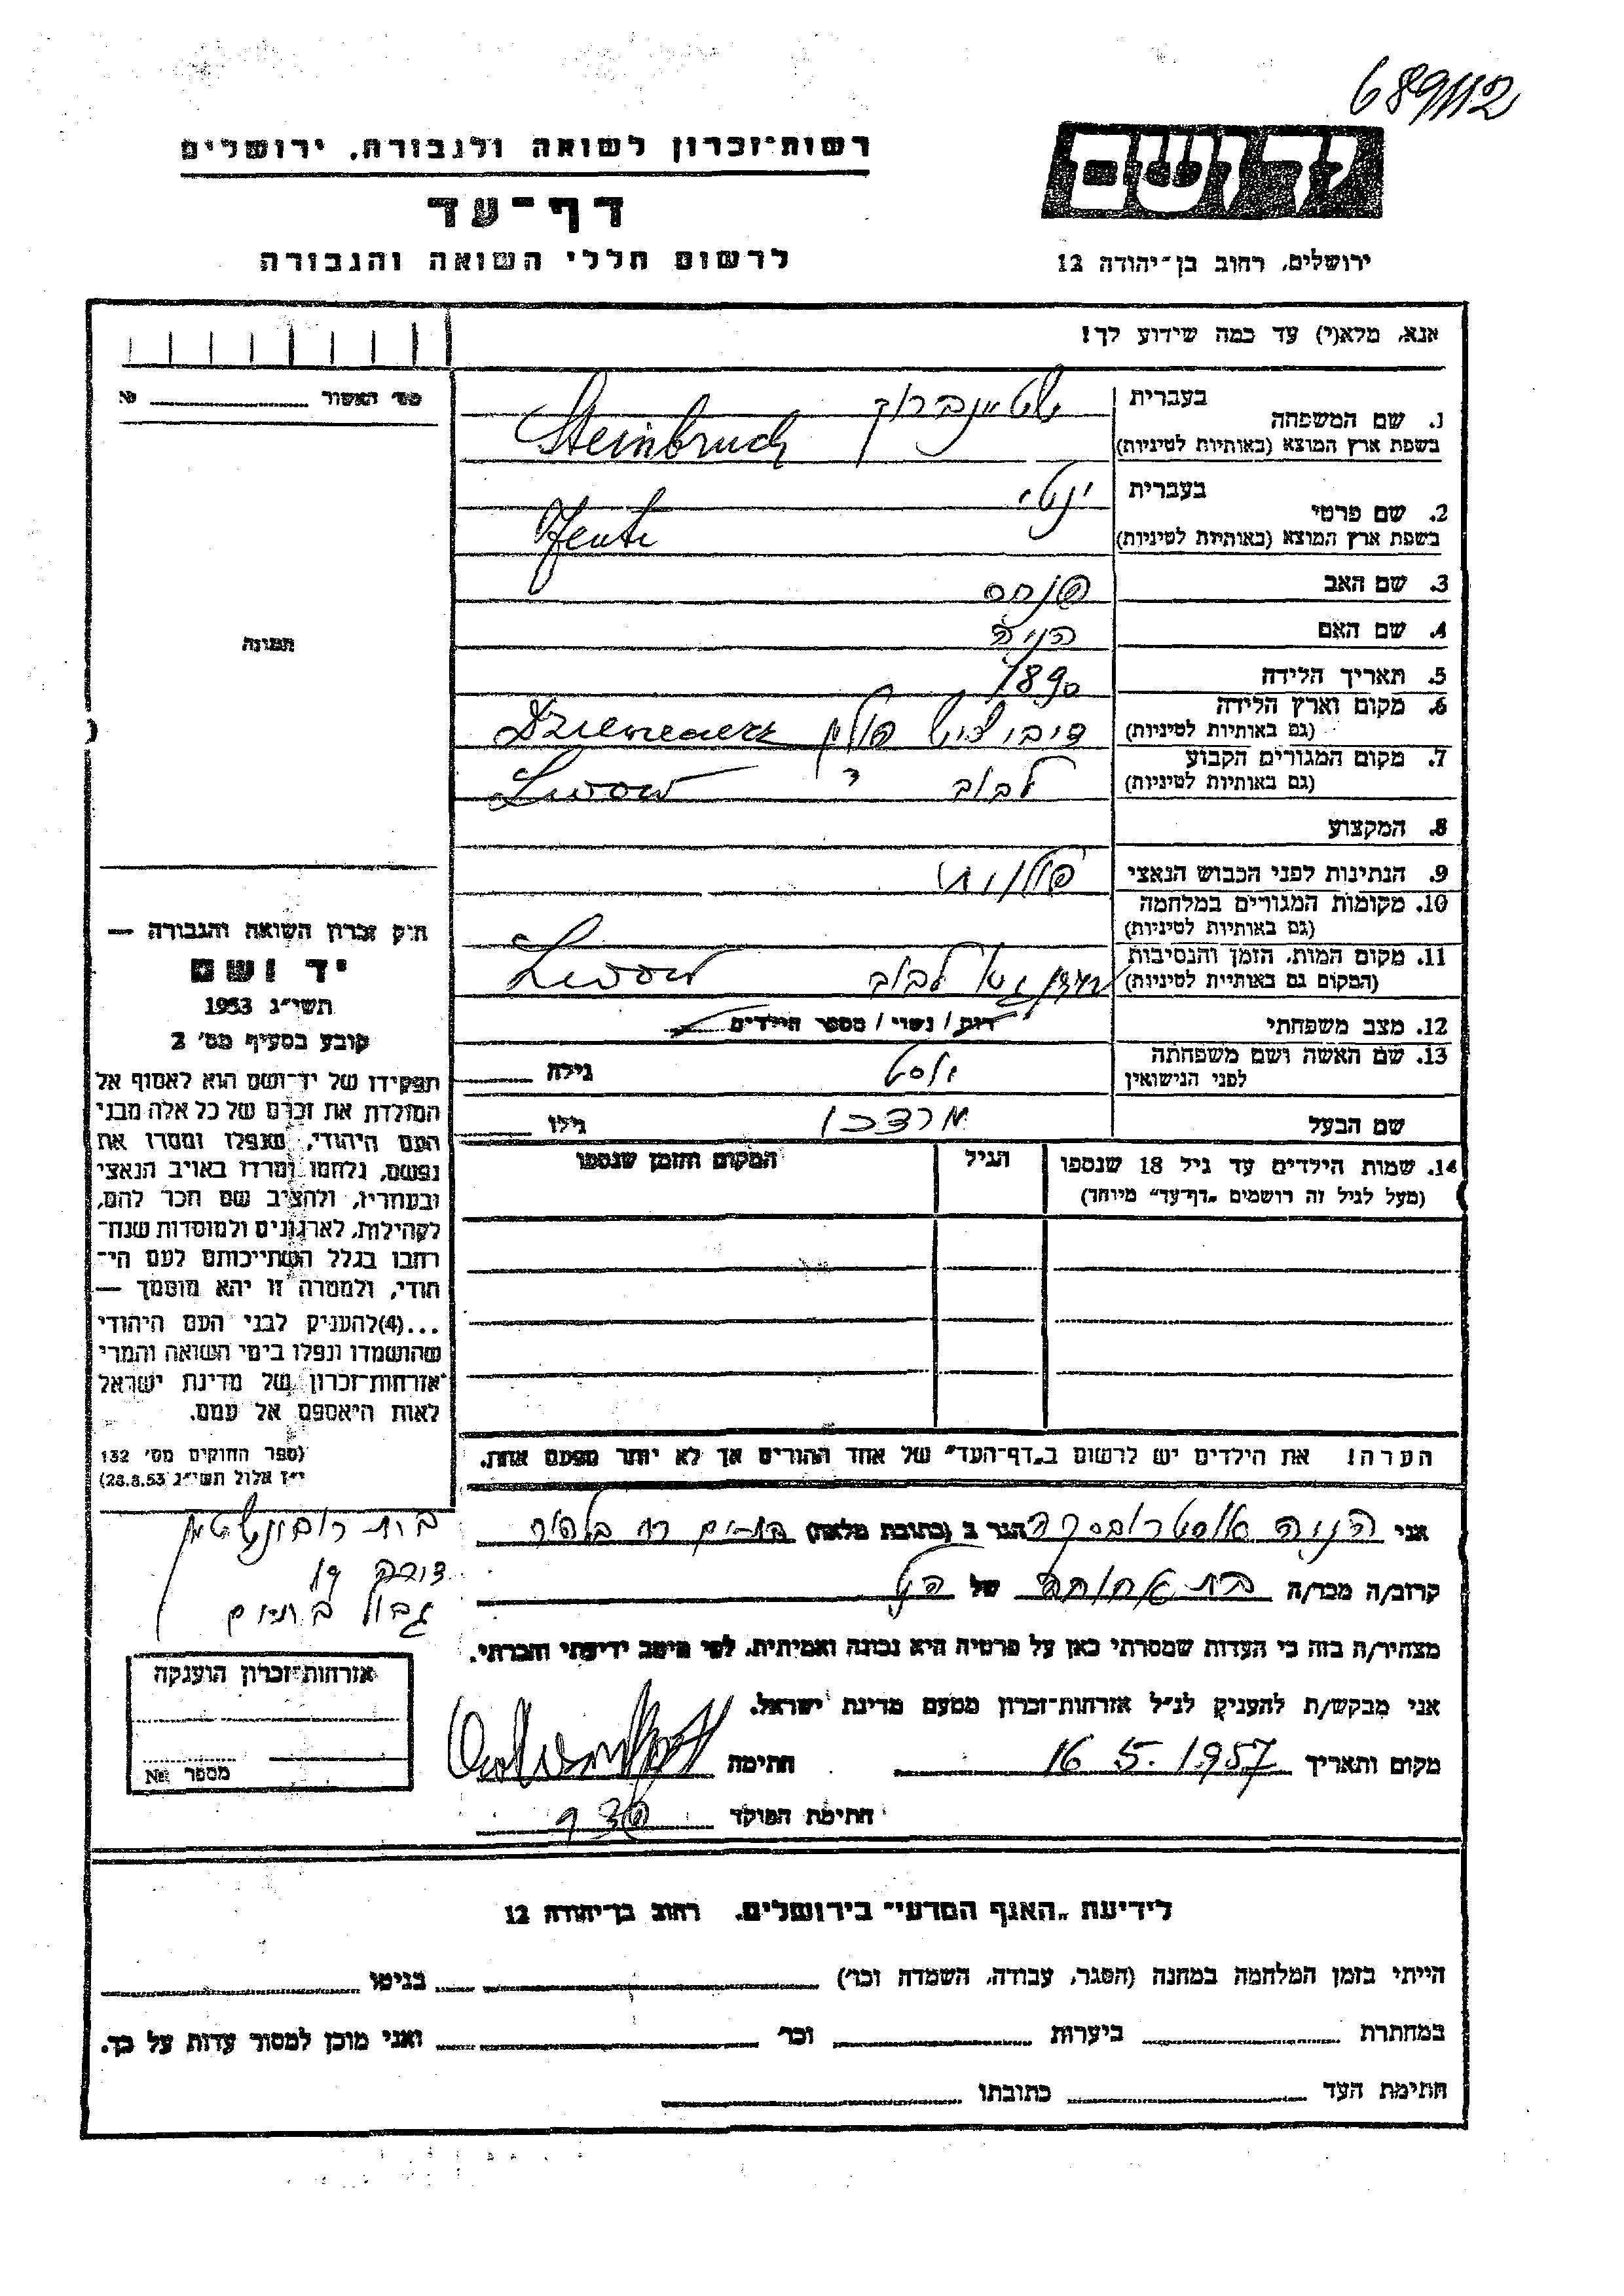 689112
רשות־זכרון לשואה ולגבורה, ירושלים
דף־עד
לרשום חללי השואה והגבורה
ידושם
ירושלים, רחוב בן־יהודה 12
אנא, מלא(י) עד כמה שידוע לך!
מס׳ האשור № 
בעברית שטיינברוך
1. שם המשפחה
בשפת ארץ המוצא (באותיות לטיניות) Steinbruch
בעברית ינטי
2. שם פרטי
בשפת ארץ המוצא (באותיות לטיניות) Jente
3. שם האב פנחס
4. שם האם הניה
5. תאריך הלידה 1890
6. מקום וארץ הלידה פולין
(גם באותיות לטיניות)
7. מקום המגורים הקבוע לבוב Lwow
(גם באותיות לטיניות)
8. המקצוע
9. הנתינות לפני הכבוש הנאצי פולנית
10. מקומות המגורים במלחמה
(גם באותיות לטיניות)
11. מקום המות, הזמן והנסיבות לבוב Lwow
(המקום גם באותיית לטיניות)
12. מצב משפחתי רווק / נשוי / מספר הילדים
13. שם האשה ושם משפחתה גילה
לפני הנישואין
שם הבעל מרדכי גילו
14. שמות הילדים עד גיל 18 שנספו הגיל המקום והזמן שנספו
(מעל לגיל זה רושמים „דף־עד״ מיוחד)
תמונה
חוק זכרון השואה והגבורה —
יד ושם
תשי״ג 1953
קובע בסעיף מס׳ 2
תפקידו של יד־ושם הוא לאסוף אל
המולדת את זכרם של כל אלה מבני
העם היהודי, שנפלו ומסרו את
נפשם, נלחמו ומרדו באויב הנאצי
ובעוזריו, ולהציב שם וזכר להם,
לקהילות, לארגונים ולמוסדות שנח־
רבו בגלל השתייכותם לעם הי־
הודי, ולמטרה זו יהא מוסמך —
...(4)להעניק לבני העם היהודי
שהושמדו ונפלו בימי השואה והמרי
אזרחות־זכרון של מדינת ישראל
לאות היאספם אל עמם.
(ספר החוקים מס׳ 132
י״ז אלול תשי״ג 28.8.53)
הערה! את הילדים יש לרשום ב„דף־העד״ של אחד ההורים אך לא יותר מפעם אחת.
אני הניה אוסטרובסקה הגר ב (כתובת מלאה) בת־ים
קרוב/ה מכר/ה בת אחותה של הנ״ל
מצהיר/ה בזה כי העדות שמסרתי כאן על פרטיה היא נכונה ואמיתית, לפי מיטב ידיעתי והכרתי.
אני מבקש/ת להעניק לנ״ל אזרחות־זכרון מטעם מדינת ישראל.
מקום ותאריך 16.5.1957 חתימה
חתימת הפוקד
גבול בת־ים
אזרחות־זכרון הוענקה
מספר №
לידיעת „האגף המדעי״ בירושלים, רחוב בן־יהודה 12
הייתי בזמן המלחמה במחנה (הסגר, עבודה, השמדה וכו׳) בגיטו
במחתרת ביערות וכו׳ ואני מוכן למסור עדות על כך.
חתימת העד כתובתו